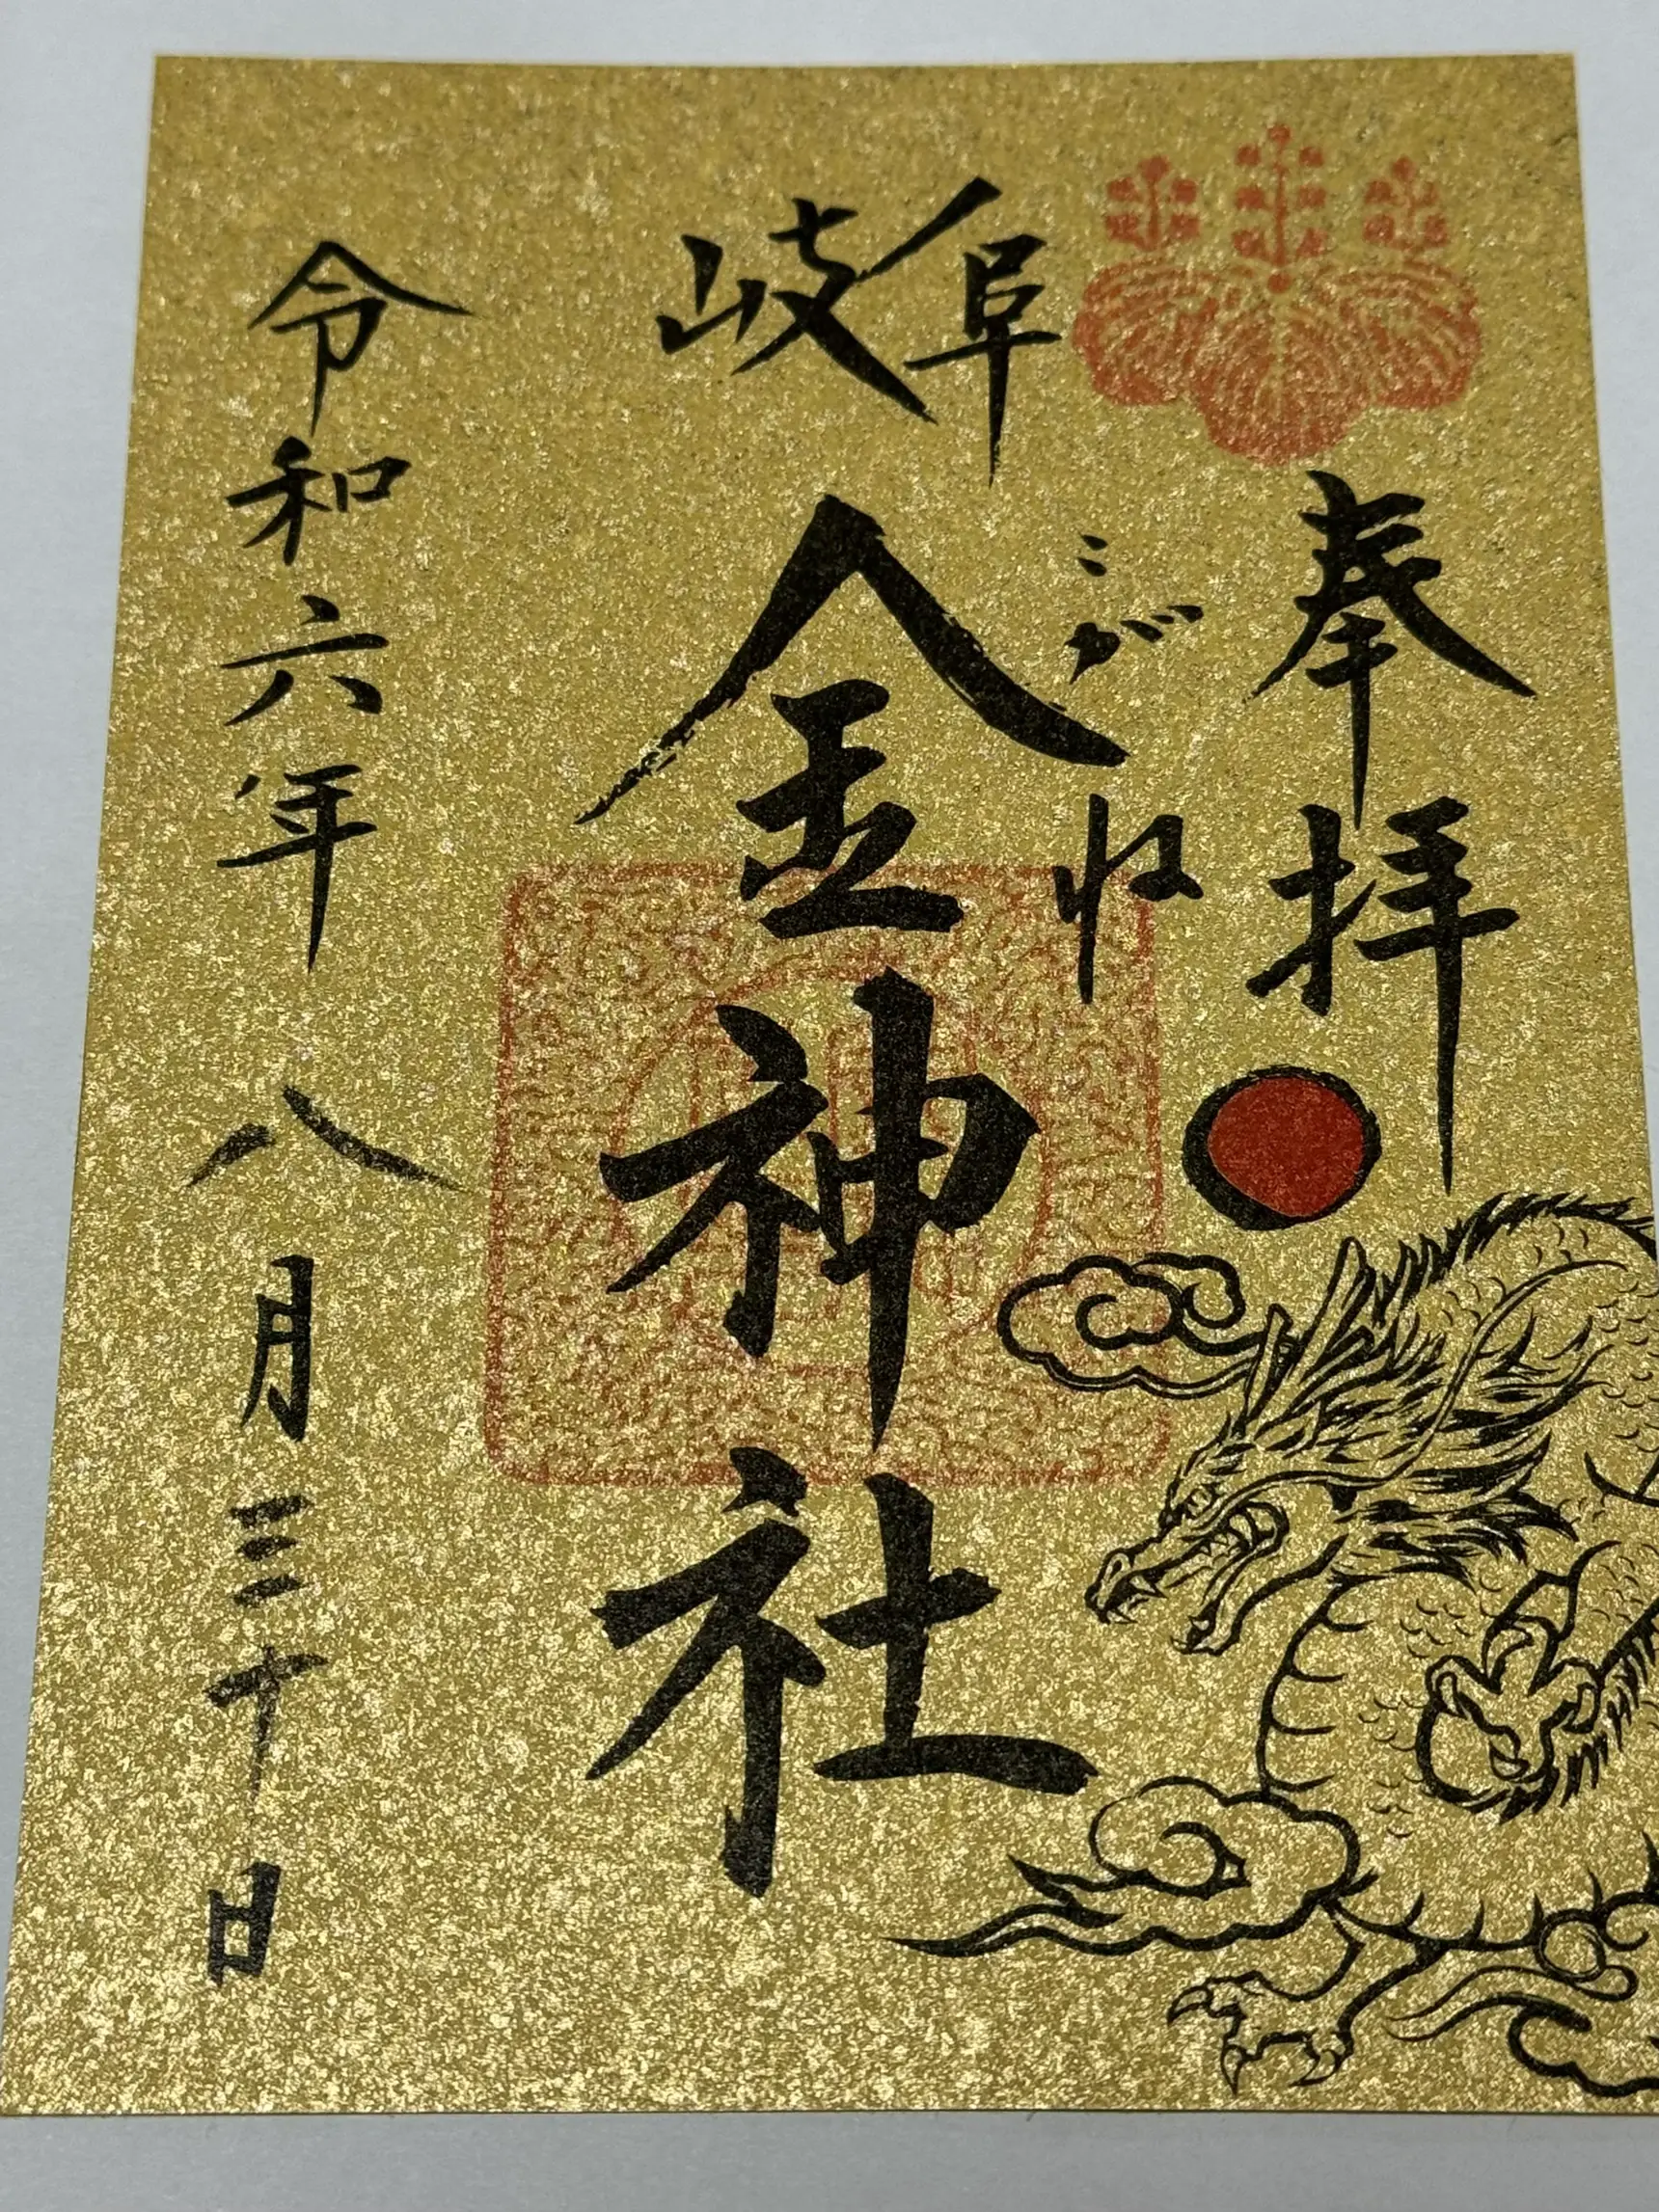 奉拝
岐阜
こがね
金神社
令和六年八月三十日